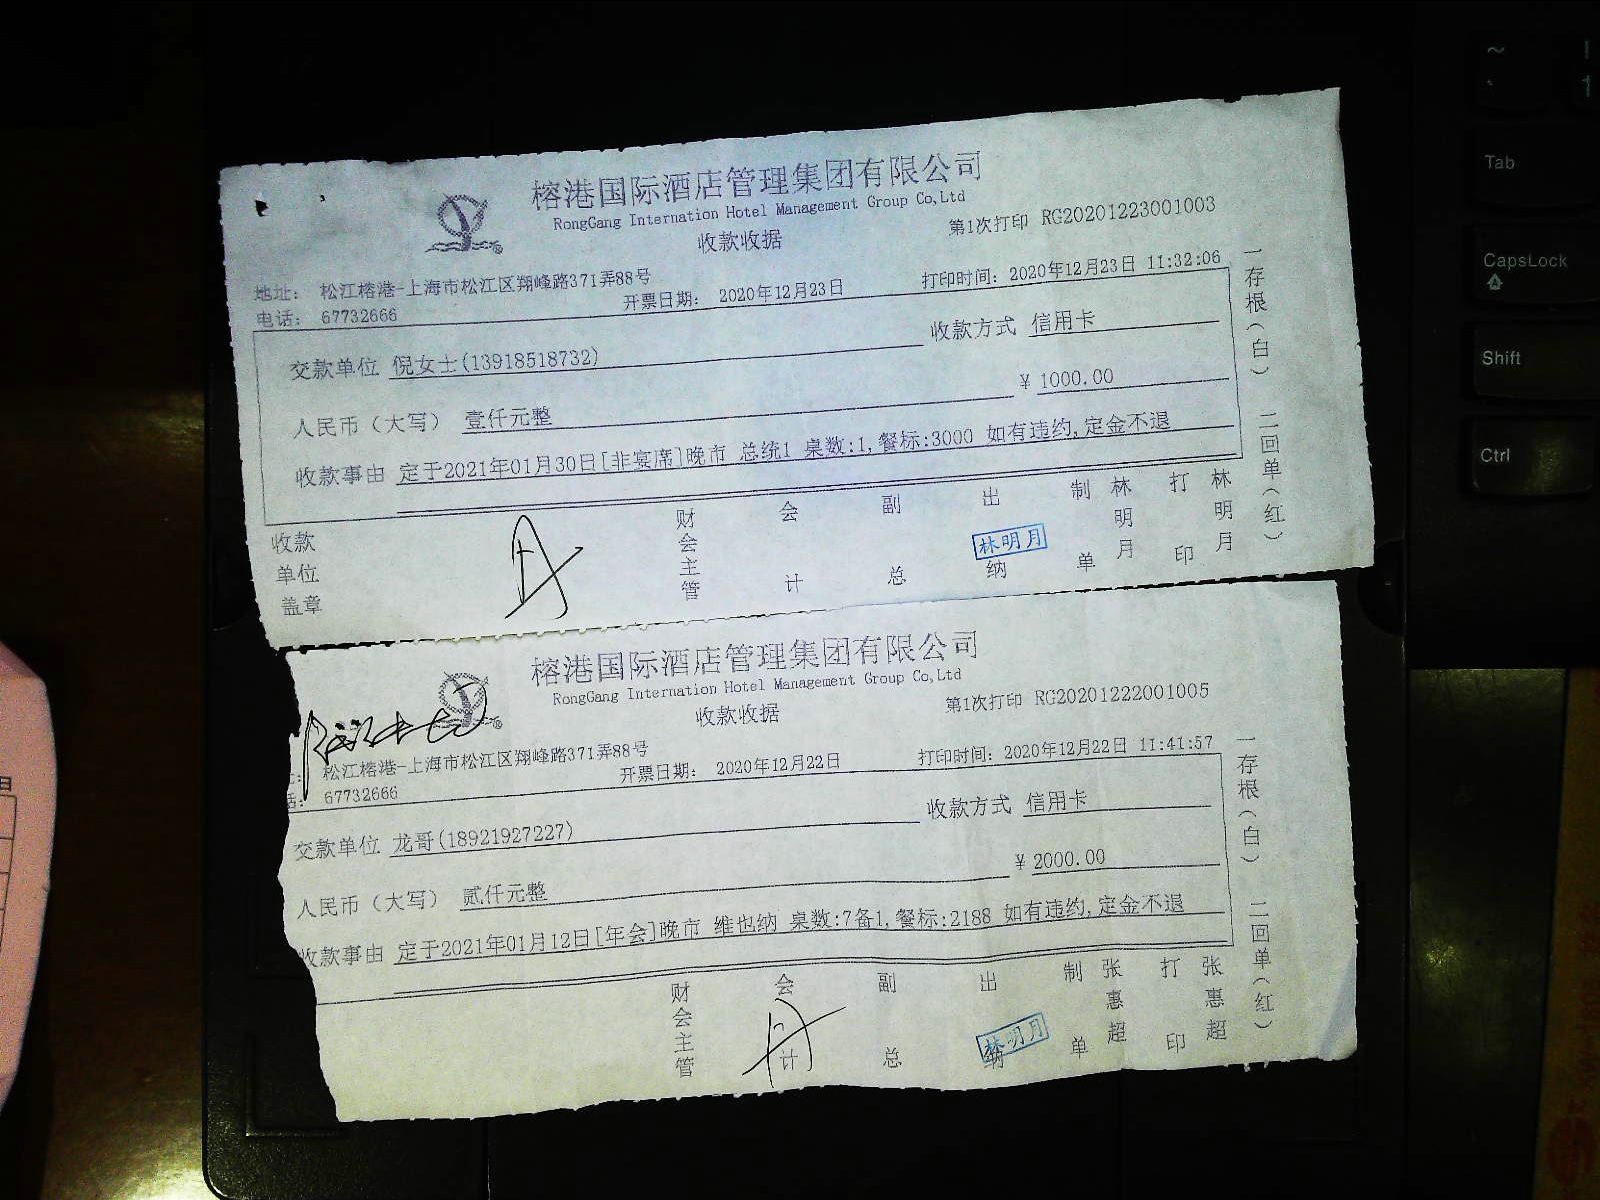 榕港国际酒店管理集团有限公司
RongGang Internation Hotel Management Group Co,Ltd
收款收据
第1次打印 RG20201223001003
地址： 松江榕港-上海市松江区翔峰路371弄88号
电话： 67732666
开票日期： 2020年12月23日
打印时间：2020年12月23日 11:32:06
交款单位 倪女士(13918518732)
收款方式 信用卡
人民币（大写） 壹仟元整
¥ 1000.00
收款事由 定于2021年01月30日[非宴席]晚市 总统1 桌数:1,餐标:3000 如有违约,定金不退
收款单位盖章
财会主管
会计
副总
出纳
林明月
制单
林明月
打印
林明月
一存根（白） 二回单（红）
榕港国际酒店管理集团有限公司
RongGang Internation Hotel Management Group Co,Ltd
收款收据
第1次打印 RG20201222001005
松江榕港-上海市松江区翔峰路371弄88号
话： 67732666
开票日期： 2020年12月22日
打印时间：2020年12月22日 11:41:57
交款单位 龙哥(18921927227)
收款方式 信用卡
人民币（大写） 贰仟元整
¥ 2000.00
收款事由 定于2021年01月12日[年会]晚市 维也纳 桌数:7备1,餐标:2188 如有违约,定金不退
财会主管
会计
副总
出纳
林明月
制单
张惠超
打印
张惠超
一存根（白） 二回单（红）
Tab
CapsLock
Shift
Ctrl